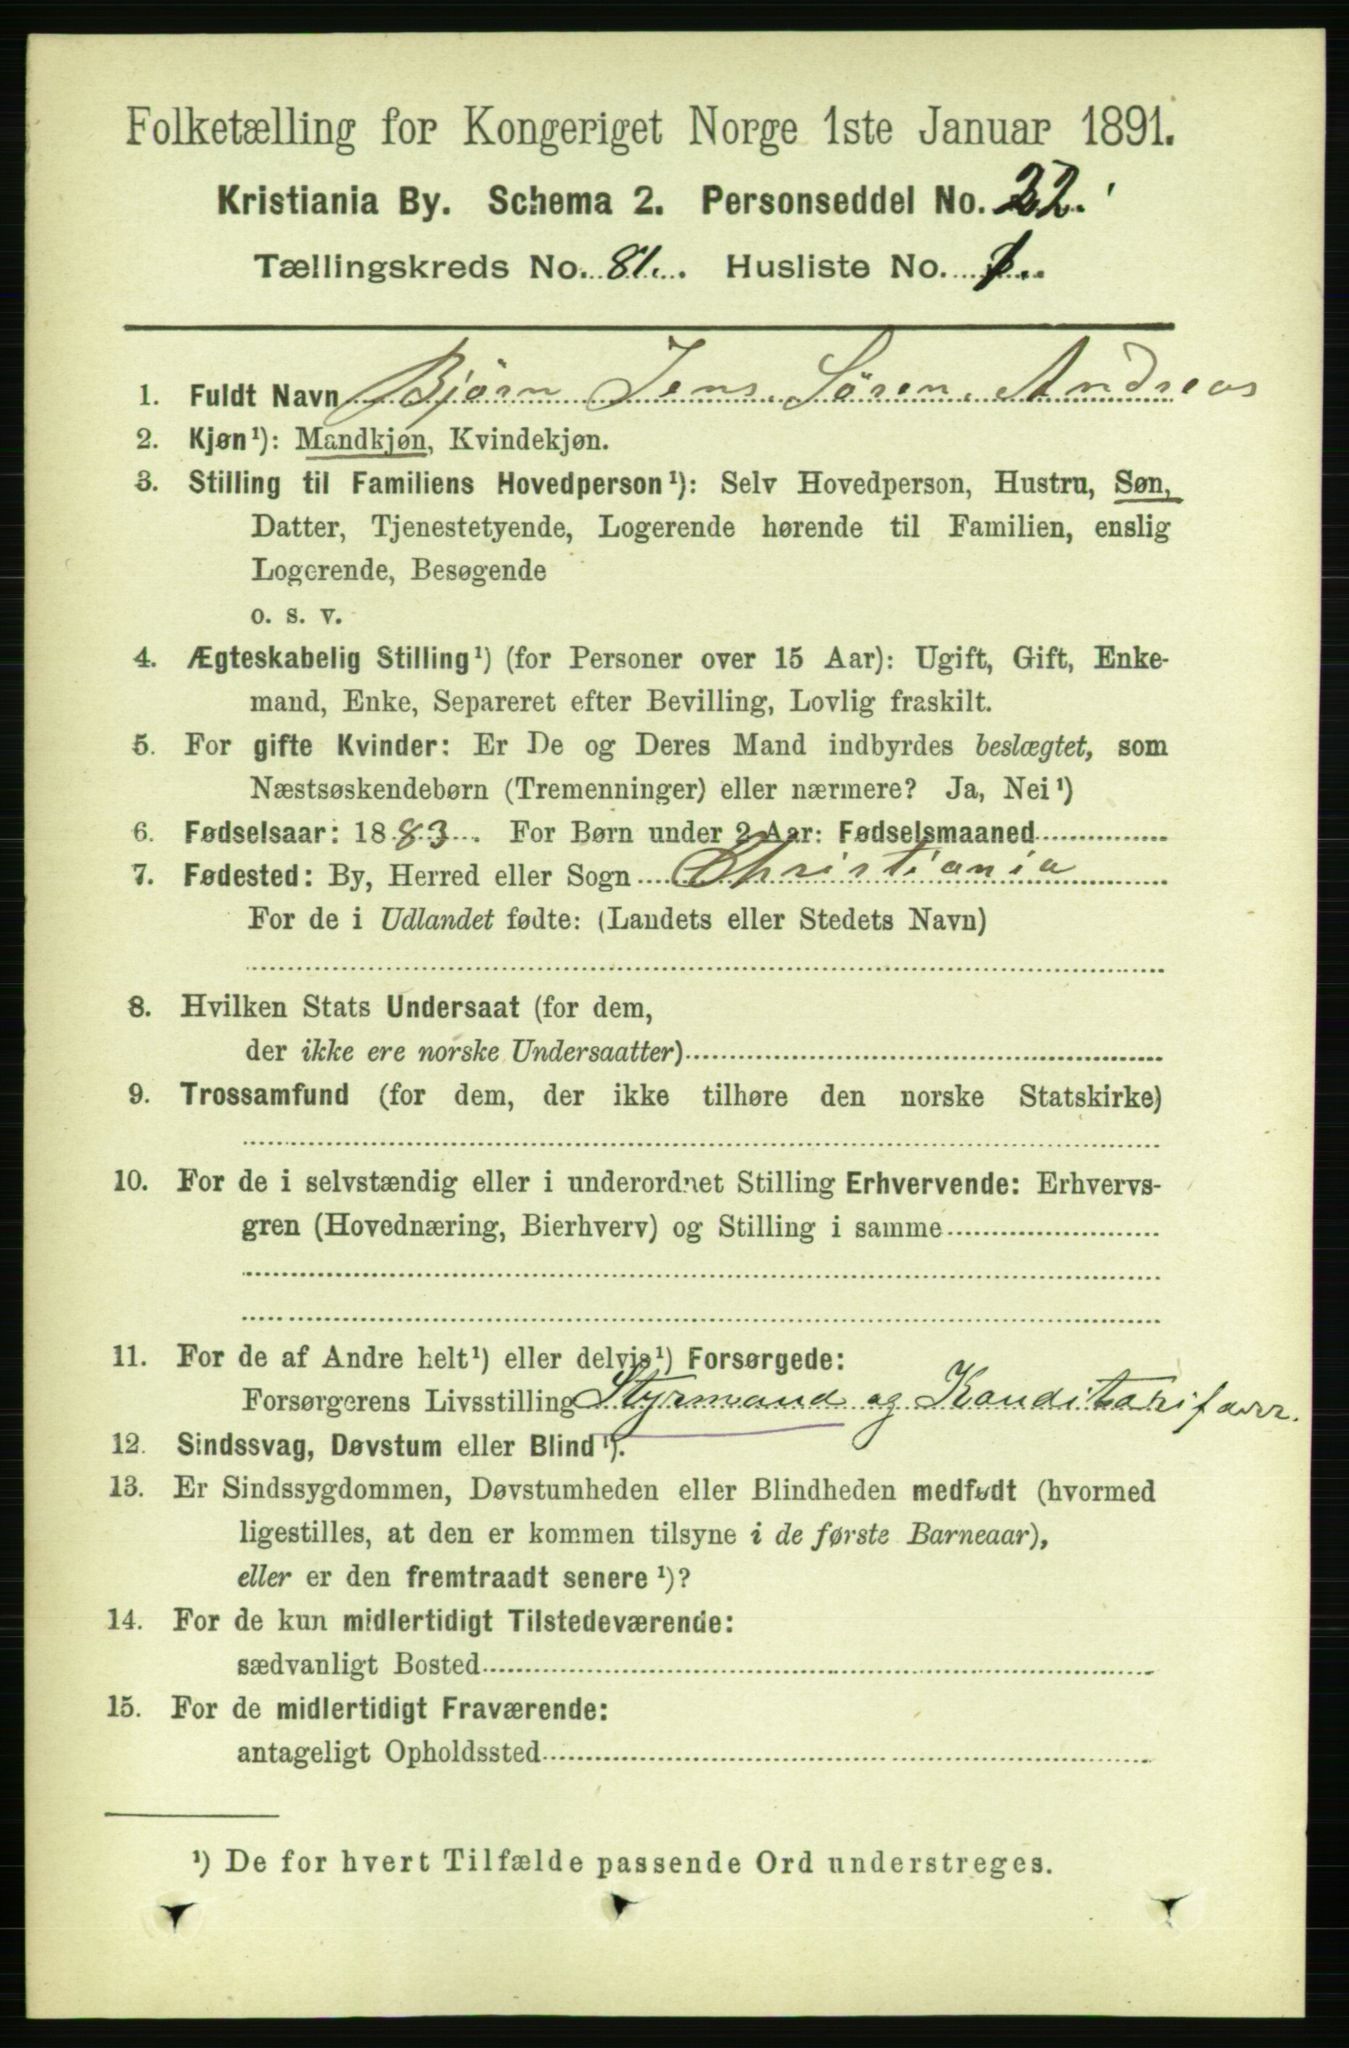 Folketælling for Kongeriget Norge 1ste Januar 1891.
Kristiania By. Schema 2. Personseddel No. 22.
Tællingskreds No. 81. Husliste No. 1.
1. Fuldt Navn Bjørn Jens Sören Andreas
2. Kjøn¹): Mandkjøn, Kvindekjøn.
3. Stilling til Familiens Hovedperson¹): Selv Hovedperson, Hustru, Søn,
Datter, Tjenestetyende, Logerende hørende til Familien, enslig
Logerende, Besøgende
o. s. v.
4. Ægteskabelig Stilling¹) (for Personer over 15 Aar): Ugift, Gift, Enke-
mand, Enke, Separeret efter Bevilling, Lovlig fraskilt.
5. For gifte Kvinder: Er De og Deres Mand indbyrdes beslægtet, som
Næstsøskendebørn (Tremenninger) eller nærmere? Ja, Nei¹)
6. Fødselsaar: 1883. For Børn under 2 Aar: Fødselsmaaned
7. Fødested: By, Herred eller Sogn Christiania
For de i Udlandet fødte: (Landets eller Stedets Navn)
8. Hvilken Stats Undersaat (for dem,
der ikke ere norske Undersaatter)
9. Trossamfund (for dem, der ikke tilhøre den norske Statskirke)
10. For de i selvstændig eller i underordnet Stilling Erhvervende: Erhvervs-
gren (Hovednæring, Bierhverv) og Stilling i samme
11. For de af Andre helt¹) eller delvis¹) Forsørgede:
Forsørgerens Livsstilling Styrmand og
12. Sindssvag, Døvstum eller Blind¹).
13. Er Sindssygdommen, Døvstumheden eller Blindheden medfødt (hvormed
ligestilles, at den er kommen tilsyne i de første Barneaar),
eller er den fremtraadt senere¹)?
14. For de kun midlertidigt Tilstedeværende:
sædvanligt Bosted
15. For de midlertidigt Fraværende:
antageligt Opholdssted
¹) De for hvert Tilfælde passende Ord understreges.